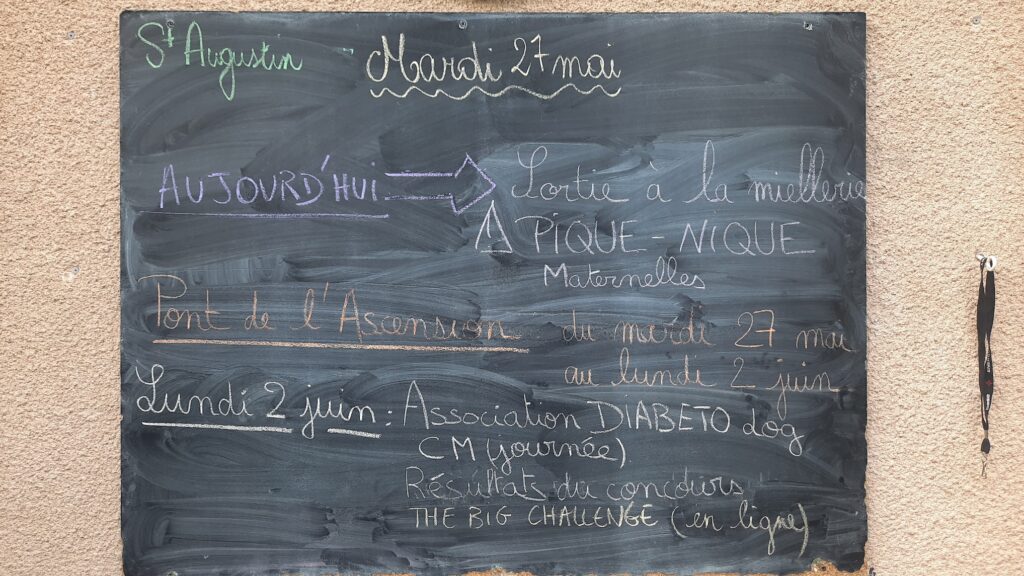 St Augustin - Mardi 27 mai
AUJOURD'HUI ⇒ Sortie à la miellerie
⚠ PIQUE-NIQUE
Maternelles
Pont de l'Ascension du mardi 27 mai
au lundi 2 juin
Lundi 2 juin : Association DIABETO dog
CM (journée)
Résultats du concours
THE BIG CHALLENGE (en ligne)